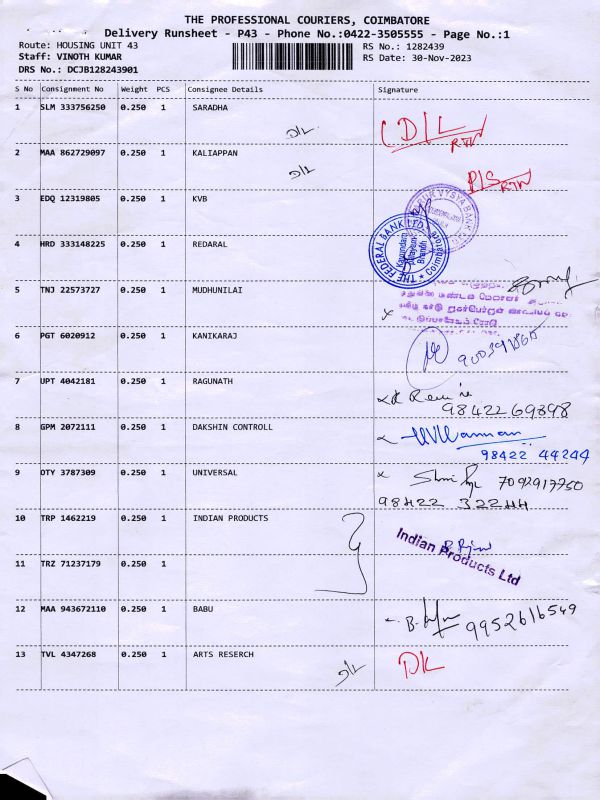 THE PROFESSIONAL COURIERS, COIMBATORE
Delivery Runsheet - P43 - Phone No.:0422-3505555 - Page No.:1
Route: HOUSING UNIT 43 RS No.: 1282439
Staff: VINOTH KUMAR RS Date: 30-Nov-2023
DRS No.: DCJB128243901
S No Consignment No Weight PCS Consignee Details Signature
1 SLM 333756250 0.250 1 SARADHA
D/L
2 MAA 862729097 0.250 1 KALIAPPAN
D/L
3 EDQ 12319805 0.250 1 KVB
VYSYA BANK
4 HRD 333148225 0.250 1 REDARAL
THE FEDERAL BANK Coimbatore
Branch
5 TNJ 22573727 0.250 1 MUDHUNILAI
6 PGT 6020912 0.250 1 KANIKARAJ
7 UPT 4042181 0.250 1 RAGUNATH
98422 69898
8 GPM 2072111 0.250 1 DAKSHIN CONTROLL
98422 44244
9 OTY 3787309 0.250 1 UNIVERSAL
7092917750
98422 32244
10 TRP 1462219 0.250 1 INDIAN PRODUCTS
Indian Products Ltd
11 TRZ 71237179 0.250 1
12 MAA 943672110 0.250 1 BABU
9952616549
13 TVL 4347268 0.250 1 ARTS RESERCH
D/L DL